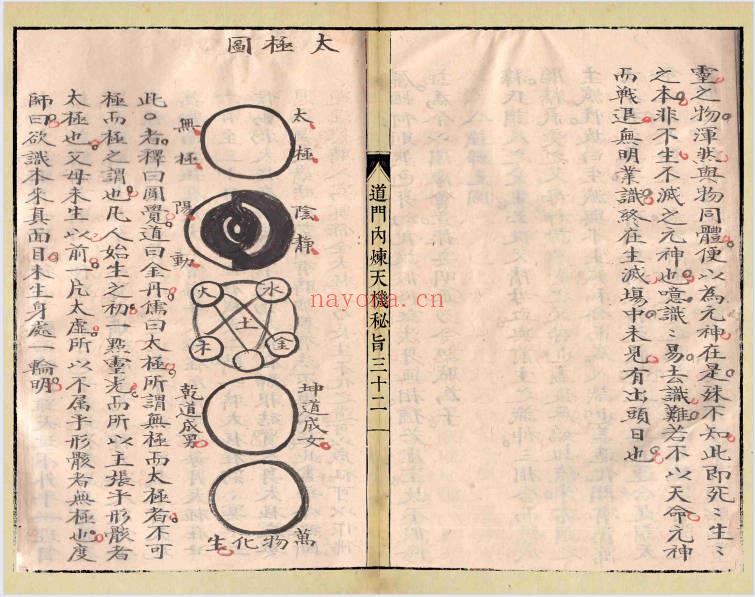 靈之物渾然與物同體便以為元神在是殊不知此即死〻生〻
之本非不生不滅之元神也噫識〻易去識難若不以天命元神
而戰退無明業識終在生滅場中未見有出頭日也
道門內煉天機秘旨三十二
太極圖
太極
無極
陰靜
陽動
水
火
土
金
木
坤道成女
乾道成男
萬物化生
此○者釋曰圓覺道曰金丹儒曰太極所謂無極而太極者不可
極而極之謂也凡人始生之初一點靈光而所以主張乎形骸者
太極也父母未生以前一片太虛所以不属乎形骸者無極也度
師曰欲識本來真面目未生身處一輪明
nayona.cn